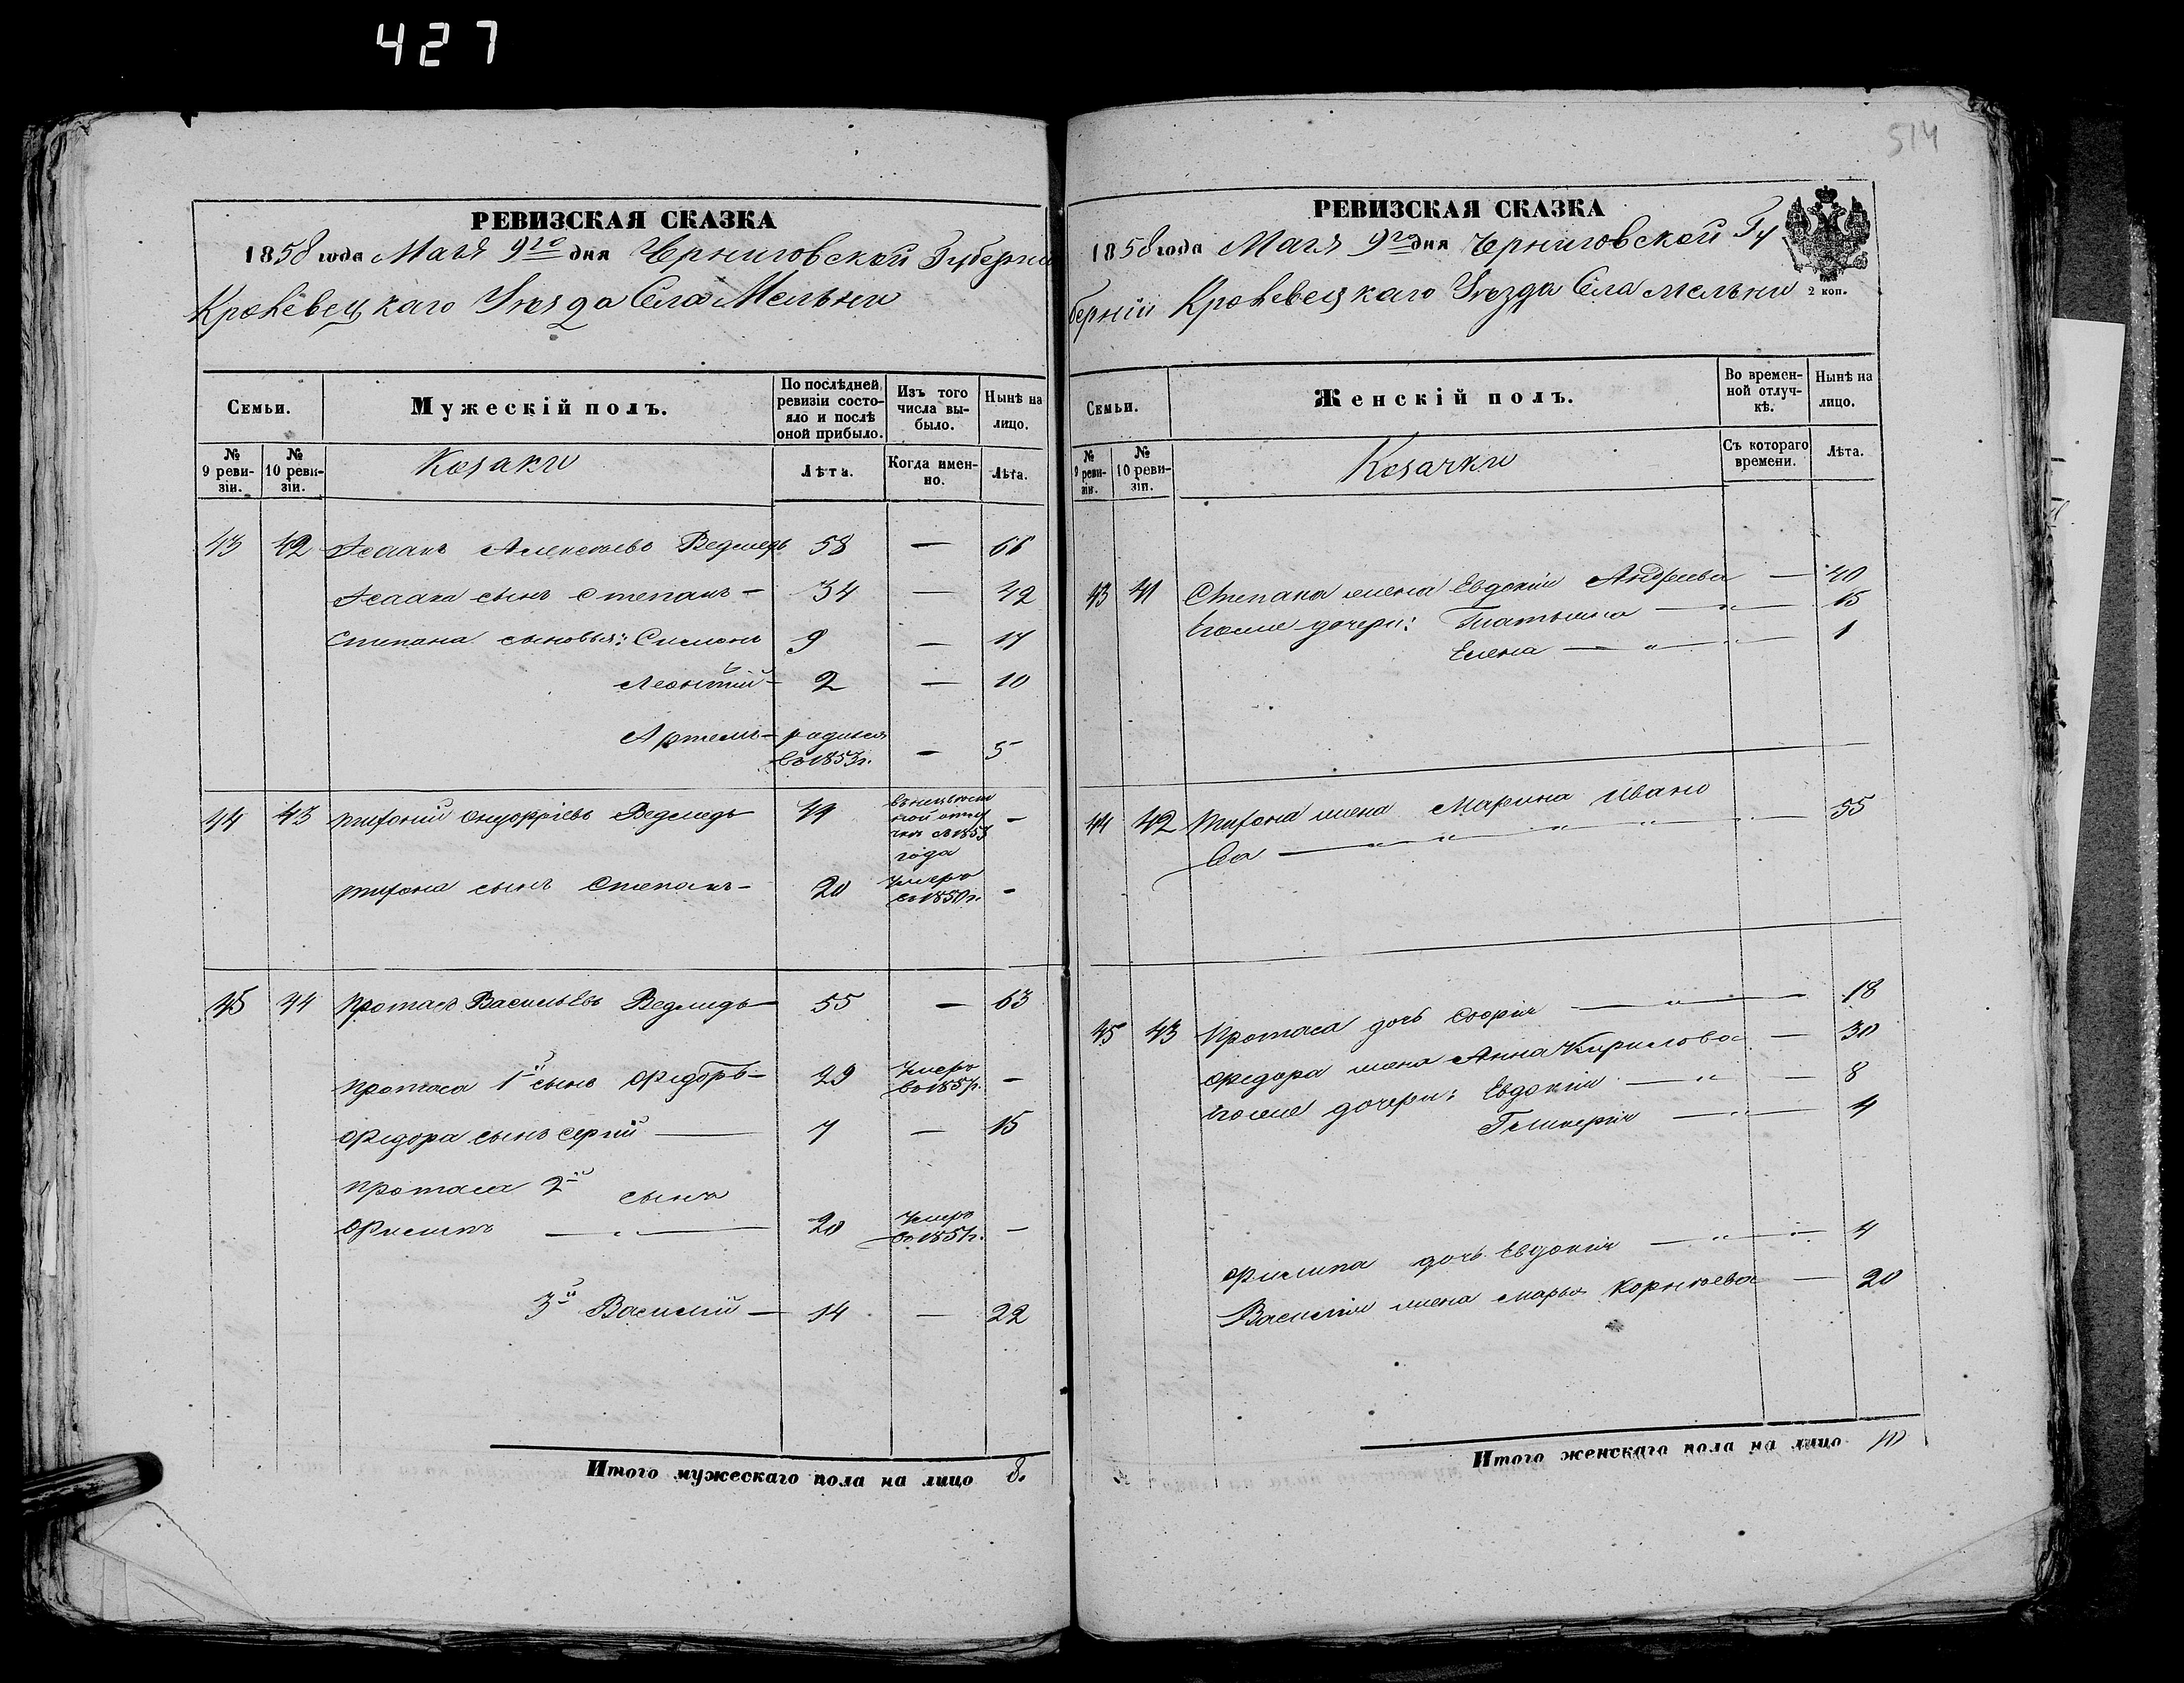 427
514
РЕВИЗСКАЯ СКАЗКА
1858 года Мая 9го дня Черниговской Губерни
Кролевецкаго Уезда Села Мельни
Семьи.
Мужескій полъ.
По послѣдней ревизіи состо-
яло и послѣ
оной прибыло.
Изъ того
числа вы-
было.
Нынѣ на
лицо.
№
9 реви-
зіи.
№
10 реви-
зіи.
Козаки
Лѣта.
Когда имен-
но.
Лѣта.
43 42 Исаакъ Алексѣевъ Ведмедь 58 — 66
Исаака сынъ Степанъ — 34 — 42
Степана сыновья: Симонъ 9 — 17
Леонтій — 2 — 10
Артемъ — родился
въ 1853г. — 5
44 43 Тифоній Онуфріевъ Ведмедь 49 —
года
Тифона сынъ Степанъ — 20 Умеръ
въ 1850г. —
45 44 Протасъ Васильевъ Ведмедь — 55 — 63
Протаса 1й сынъ Ѳедоръ — 29 Умеръ
въ 1857г. —
Ѳедора сынъ Сергій — 7 — 15
Протаса 2й сынъ
Филипъ — " — 20 Умеръ
въ 1857г. —
3й Василій — 14 — 22
Итого мужескаго пола на лицо 8.
РЕВИЗСКАЯ СКАЗКА
1858 года Мая 9го дня Черниговской Гу
берніи Кролевецкаго Уезда Села Мельни
2 коп.
Семьи.
Женскій полъ.
Во времен-
ной отлуч-
кѣ.
Нынѣ на
лицо.
№
9 реви-
зіи.
№
10 реви-
зіи.
Козачки
Съ котораго
времени.
Лѣта.
43 41 Степана жена Евдокія Андреева — 40
дочери: Татьяна — " — 15
Елена — " — 1
44 42 Тифона жена Марина Ивано
ва — " " " " — 55
45 43 Протаса дочь Софія — " — 18
Ѳедора жена Анна Кирилова — 30
дочери: Евдокія — " — 8
Гликерія — " — 4
Филипа дочь Евдокія — " — 4
Василія жена Марья Корнѣева — 20
Итого женскаго пола на лицо 10